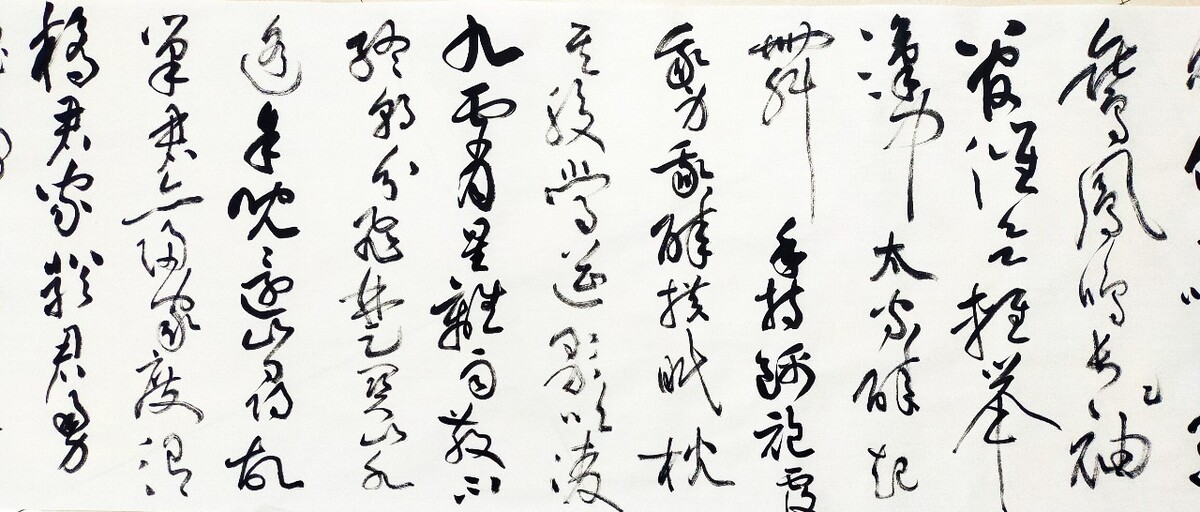 鸞鳳鳴長袖
管催欲輕舉
漢中太守醉起
舞手持錦袍覆
我身我醉橫眠枕
其股當筵意氣凌
九霄星離雨散不
終朝分飛楚關山水
遙余既還山尋故
巢君亦歸家度渭
橋君家嚴君勇